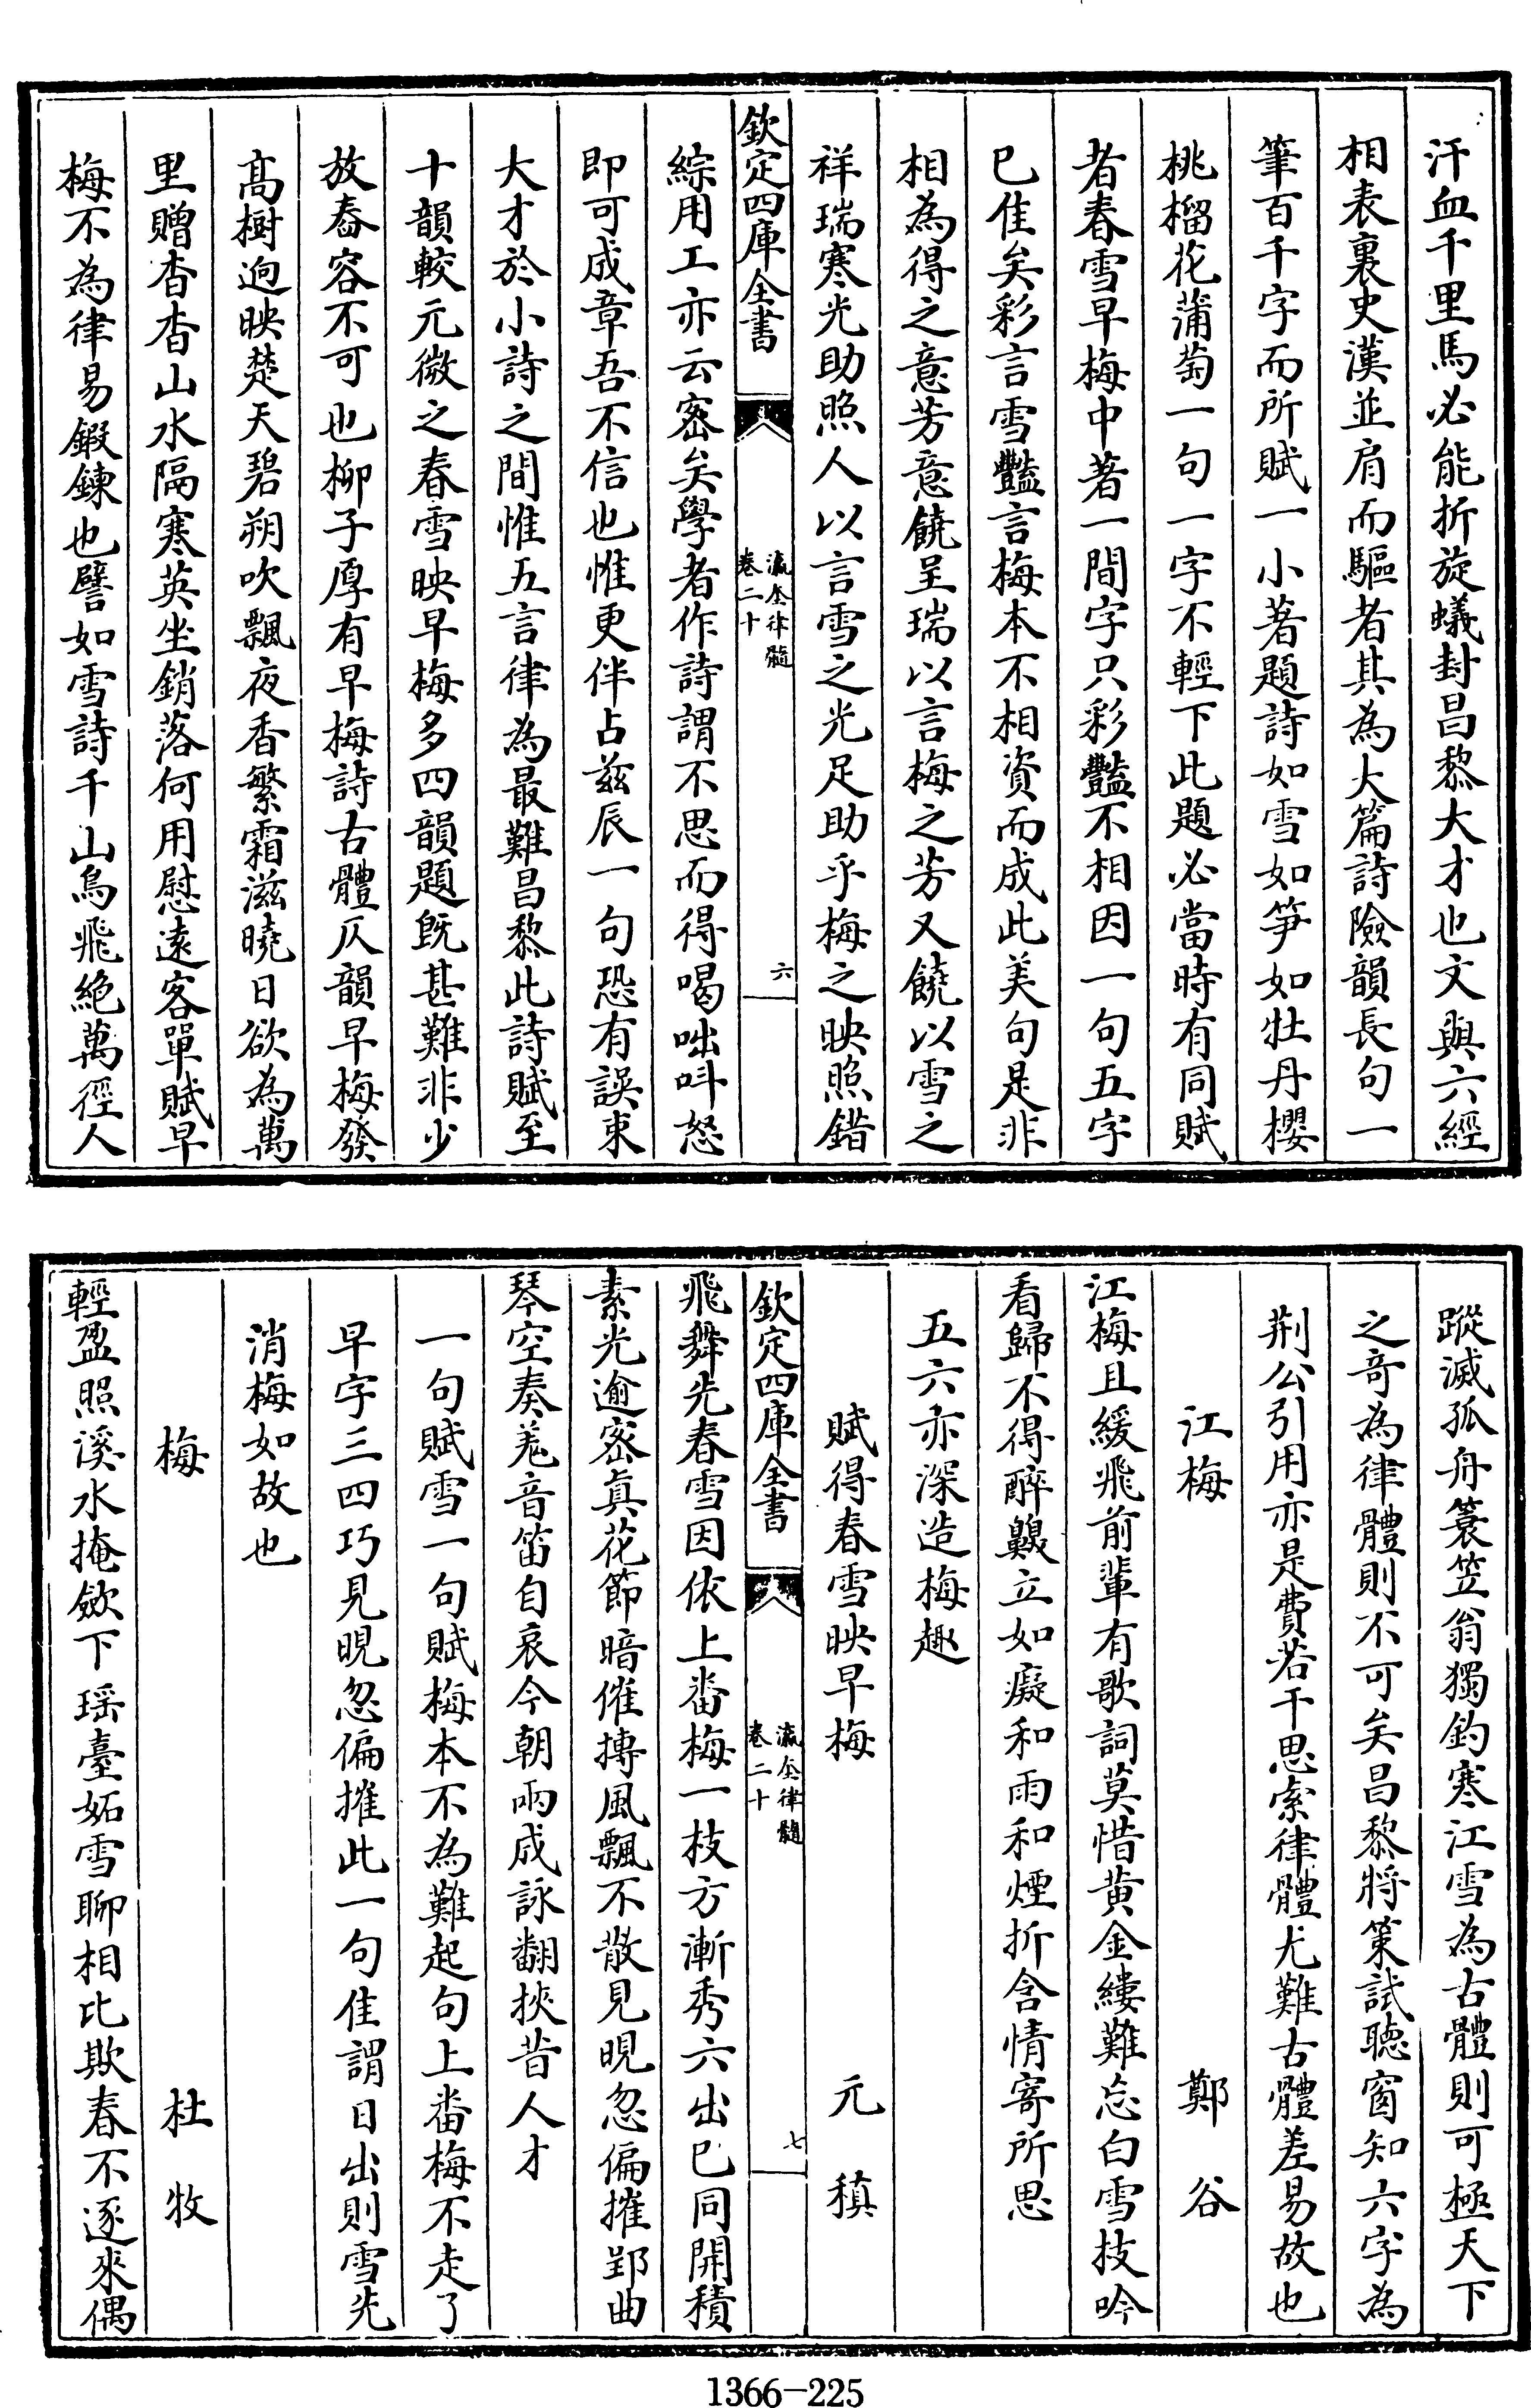 汗血千里馬必能折旋蟻封昌黎大才也文與六經
相表裏史漢並肩而驅者其為大篇詩險韻長句一
筆百千字而所賦一小著題詩如雪如笋如牡丹櫻
桃榴花蒲萄一句一字不輕下此題必當時有同賦
者春雪早梅中著一間字只彩豔不相因一句五字
已佳矣彩言雪豔言梅本不相資而成此美句是非
相為得之意芳意饒呈瑞以言梅之芳又饒以雪之
祥瑞寒光助照人以言雪之光足助乎梅之映照錯
欽定四庫全書
瀛奎律髓
卷二十
六
綜用工亦云宻矣學者作詩謂不思而得喝咄呌怒
即可成章吾不信也惟更伴占兹辰一句恐有誤東
大才於小詩之間惟五言律為最難昌黎此詩賦至
十韻較元微之春雪映早梅多四韻題既甚難非少
放春容不可也柳子厚有早梅詩古體仄韻早梅發
髙樹逈映楚天碧朔吹飄夜香繁霜滋曉日欲為萬
里贈杳杳山水隔寒英坐銷落何用慰逺客單賦早
梅不為律易鍛鍊也譬如雪詩千山鳥飛絶萬徑人
蹤滅孤舟簑笠翁獨釣寒江雪為古體則可極天下
之奇為律體則不可矣昌黎將策試聽窗知六字為
荆公引用亦是費若干思索律體尤難古體差易故也
江梅 鄭谷
江梅且緩飛前輩有歌詞莫惜黄金縷難忘白雪技吟
看歸不得醉齅立如癡和雨和煙折含情寄所思
五六亦深造梅趣
賦得春雪映早梅 元稹
欽定四庫全書
瀛奎律髓
卷二十
七
飛舞先春雪因依上畨梅一枝方漸秀六出已同開積
素光逾宻真花節暗催摶風飄不散見晛忽偏摧郢曲
琴空奏羗音笛自哀今朝兩成詠翻挾昔人才
一句賦雪一句賦梅本不為難起句上畨梅不走了
早字三四巧見晛忽偏摧此一句佳謂日出則雪先
消梅如故也
梅 杜牧
輕盈照溪水掩斂下瑶臺妬雪聊相比欺春不逐來偶
1366-225